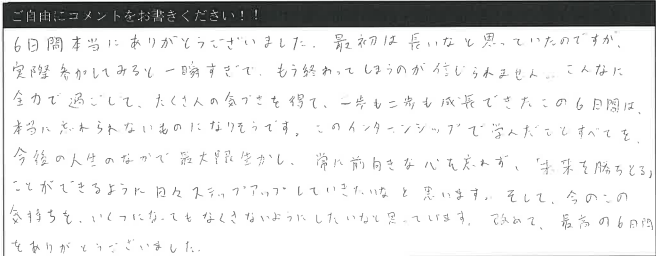 ご自由にコメントをお書きください！！
6日間本当にありがとうございました。最初は長いなと思っていたのですが、
実際参加してみると一瞬すぎで、もう終わってしまうのが信じられません。こんなに
全力で過ごして、たくさんの気づきを得て、一歩も二歩も成長できたこの6日間は、
本当に忘れられないものになりそうです。このインターンシップで学んだことすべてを、
今後の人生のなかで最大限生かし、常に前向きな心を忘れず、「未来を勝ちとる」
ことができるように日々ステップアップしていきたいなと思います。そして、今のこの
気持ちを、いくつになってもなくさないようにしたいなと思っています。改めて、最高の6日間
をありがとうございました。